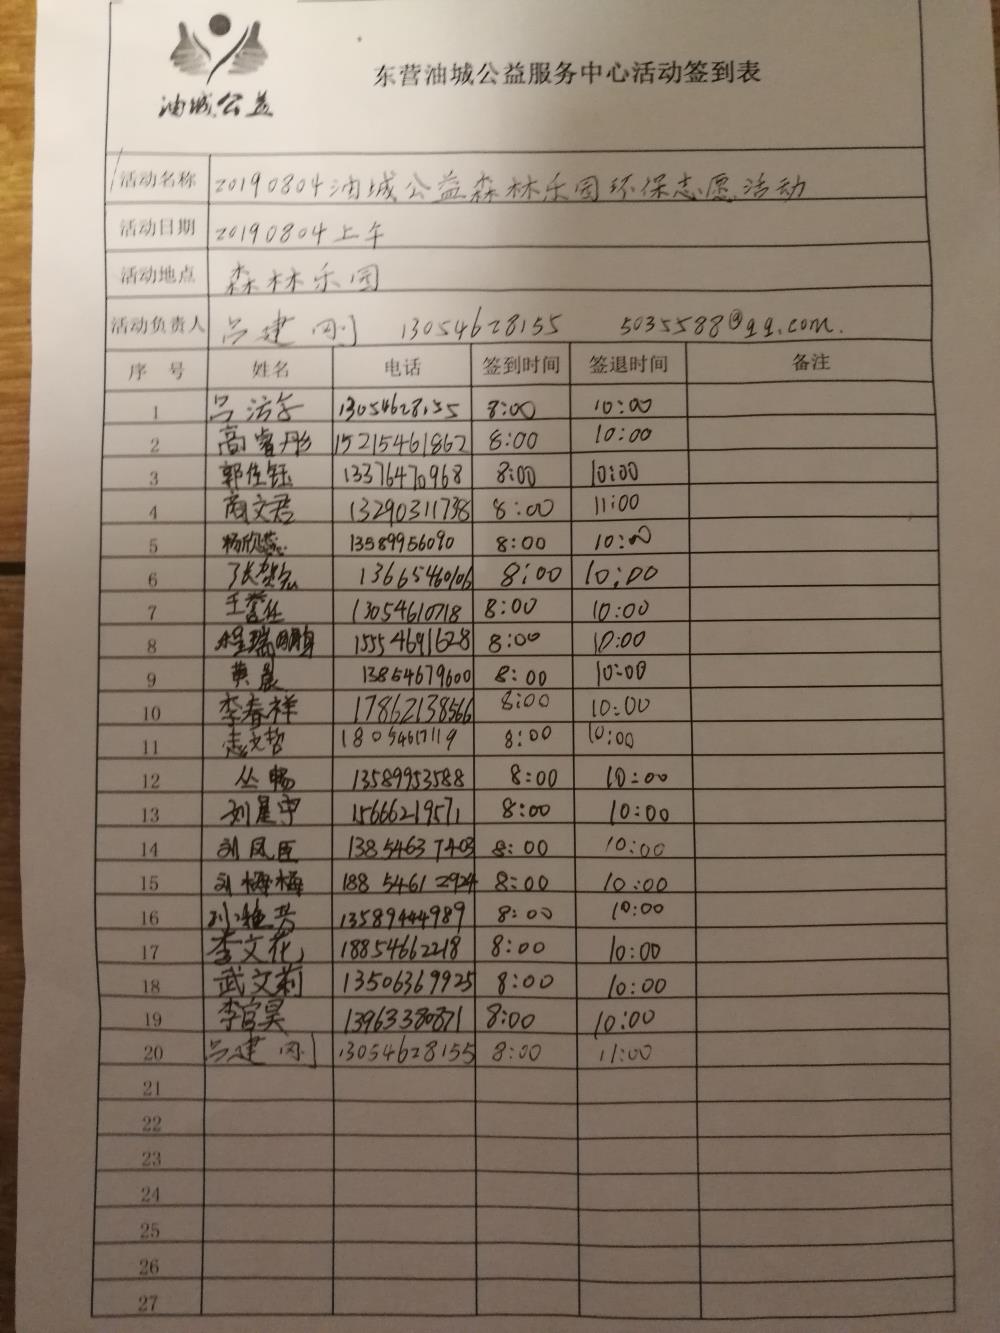 油城公益
东营油城公益服务中心活动签到表
活动名称 20190804油城公益森林乐园环保志愿活动
活动日期 20190804上午
活动地点 森林乐园
活动负责人 吕建刚 13054628155 5035588@qq.com.
序号 姓名 电话 签到时间 签退时间 备注
1 吕洁予 13054628155 8:00 10:00
2 高睿彤 15215461862 8:00 10:00
3 郭佳钰 13376470968 8:00 10:00
4 商文君 13290311738 8:00 11:00
5 杨欣蕊 13589956090 8:00 10:00
6 张贺宏 13665460106 8:00 10:00
7 王誉任 13054610718 8:00 10:00
8 程瑞鹏 15554691628 8:00 10:00
9 黄晨 13854679600 8:00 10:00
10 李春祥 17862138566 8:00 10:00
11 18054617119 8:00 10:00
12 丛畅 13589953588 8:00 10:00
13 刘星宇 15666219571 8:00 10:00
14 刘凤臣 13854637403 8:00 10:00
15 刘梅梅 18854612924 8:00 10:00
16 孙雅芳 13589444989 8:00 10:00
17 李文花 18854662218 8:00 10:00
18 武文莉 13506369925 8:00 10:00
19 李官昊 13963380871 8:00 10:00
20 吕建刚 13054628155 8:00 11:00
21
22
23
24
25
26
27